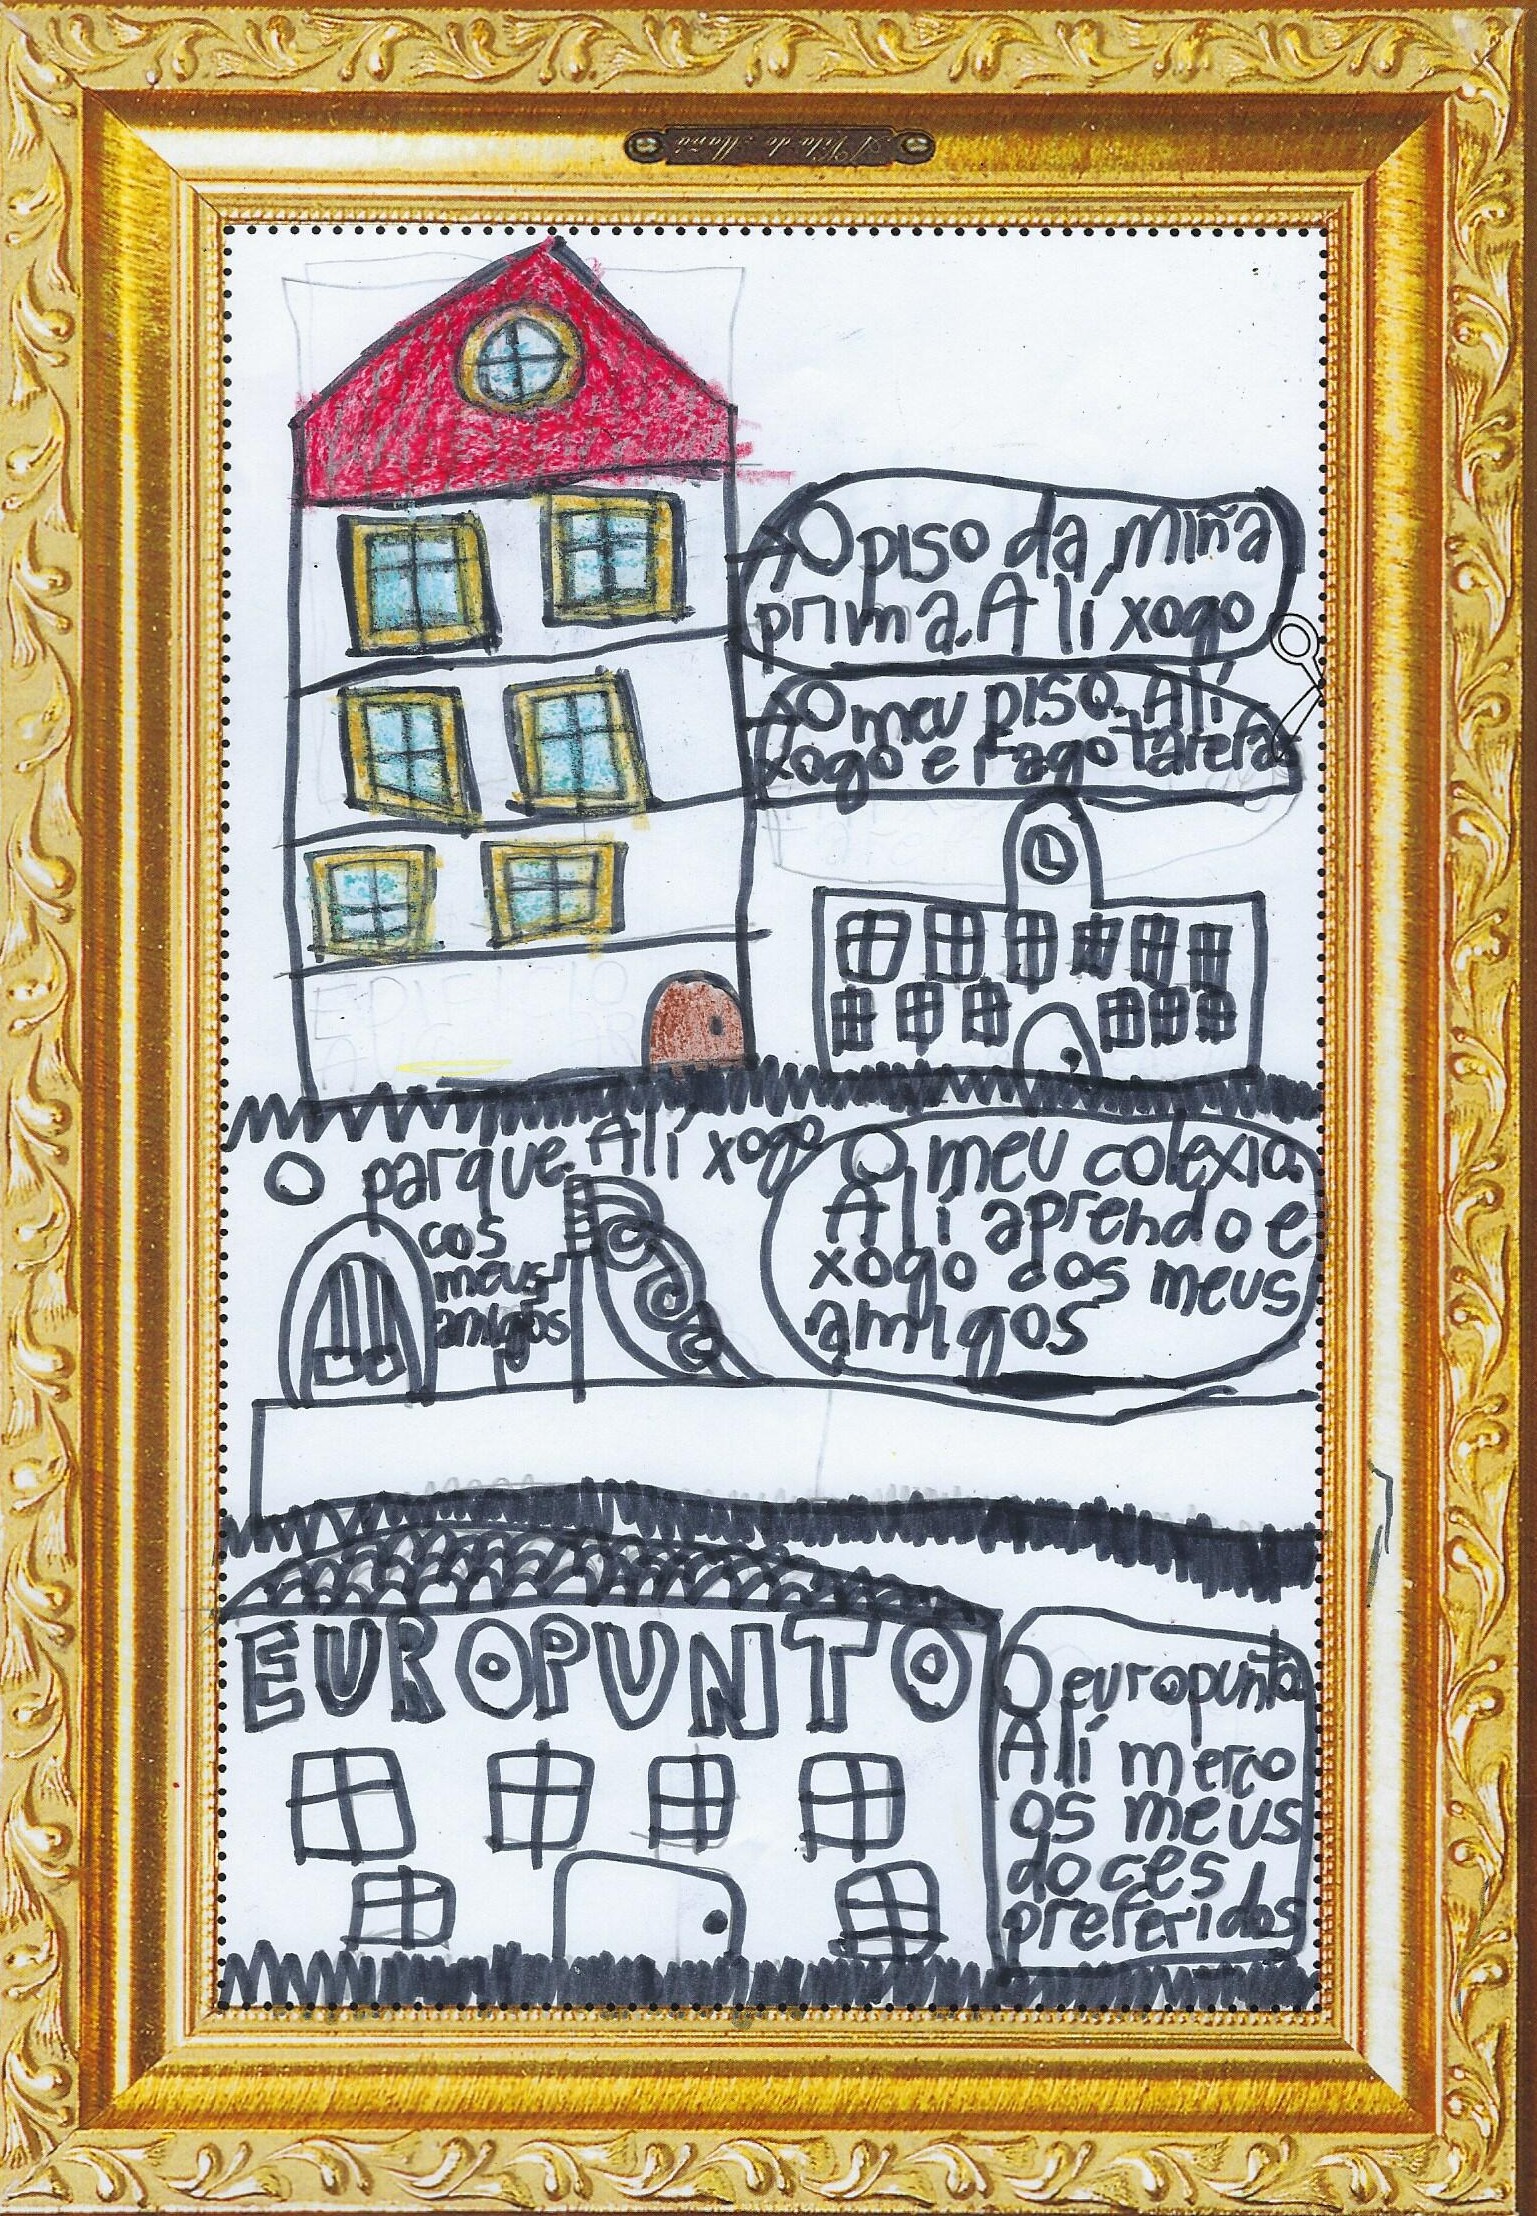 A Vila do Mañá
O piso da miña
prima. Alí xogo
O meu piso. Alí
xogo e fago tarefas
O parque. Alí xogo
cos
meus
amigos
O meu colexio.
Alí aprendo e
xogo cos meus
amigos
EUROPUNTO
O europunto
Alí merco
os meus
doces
preferidos